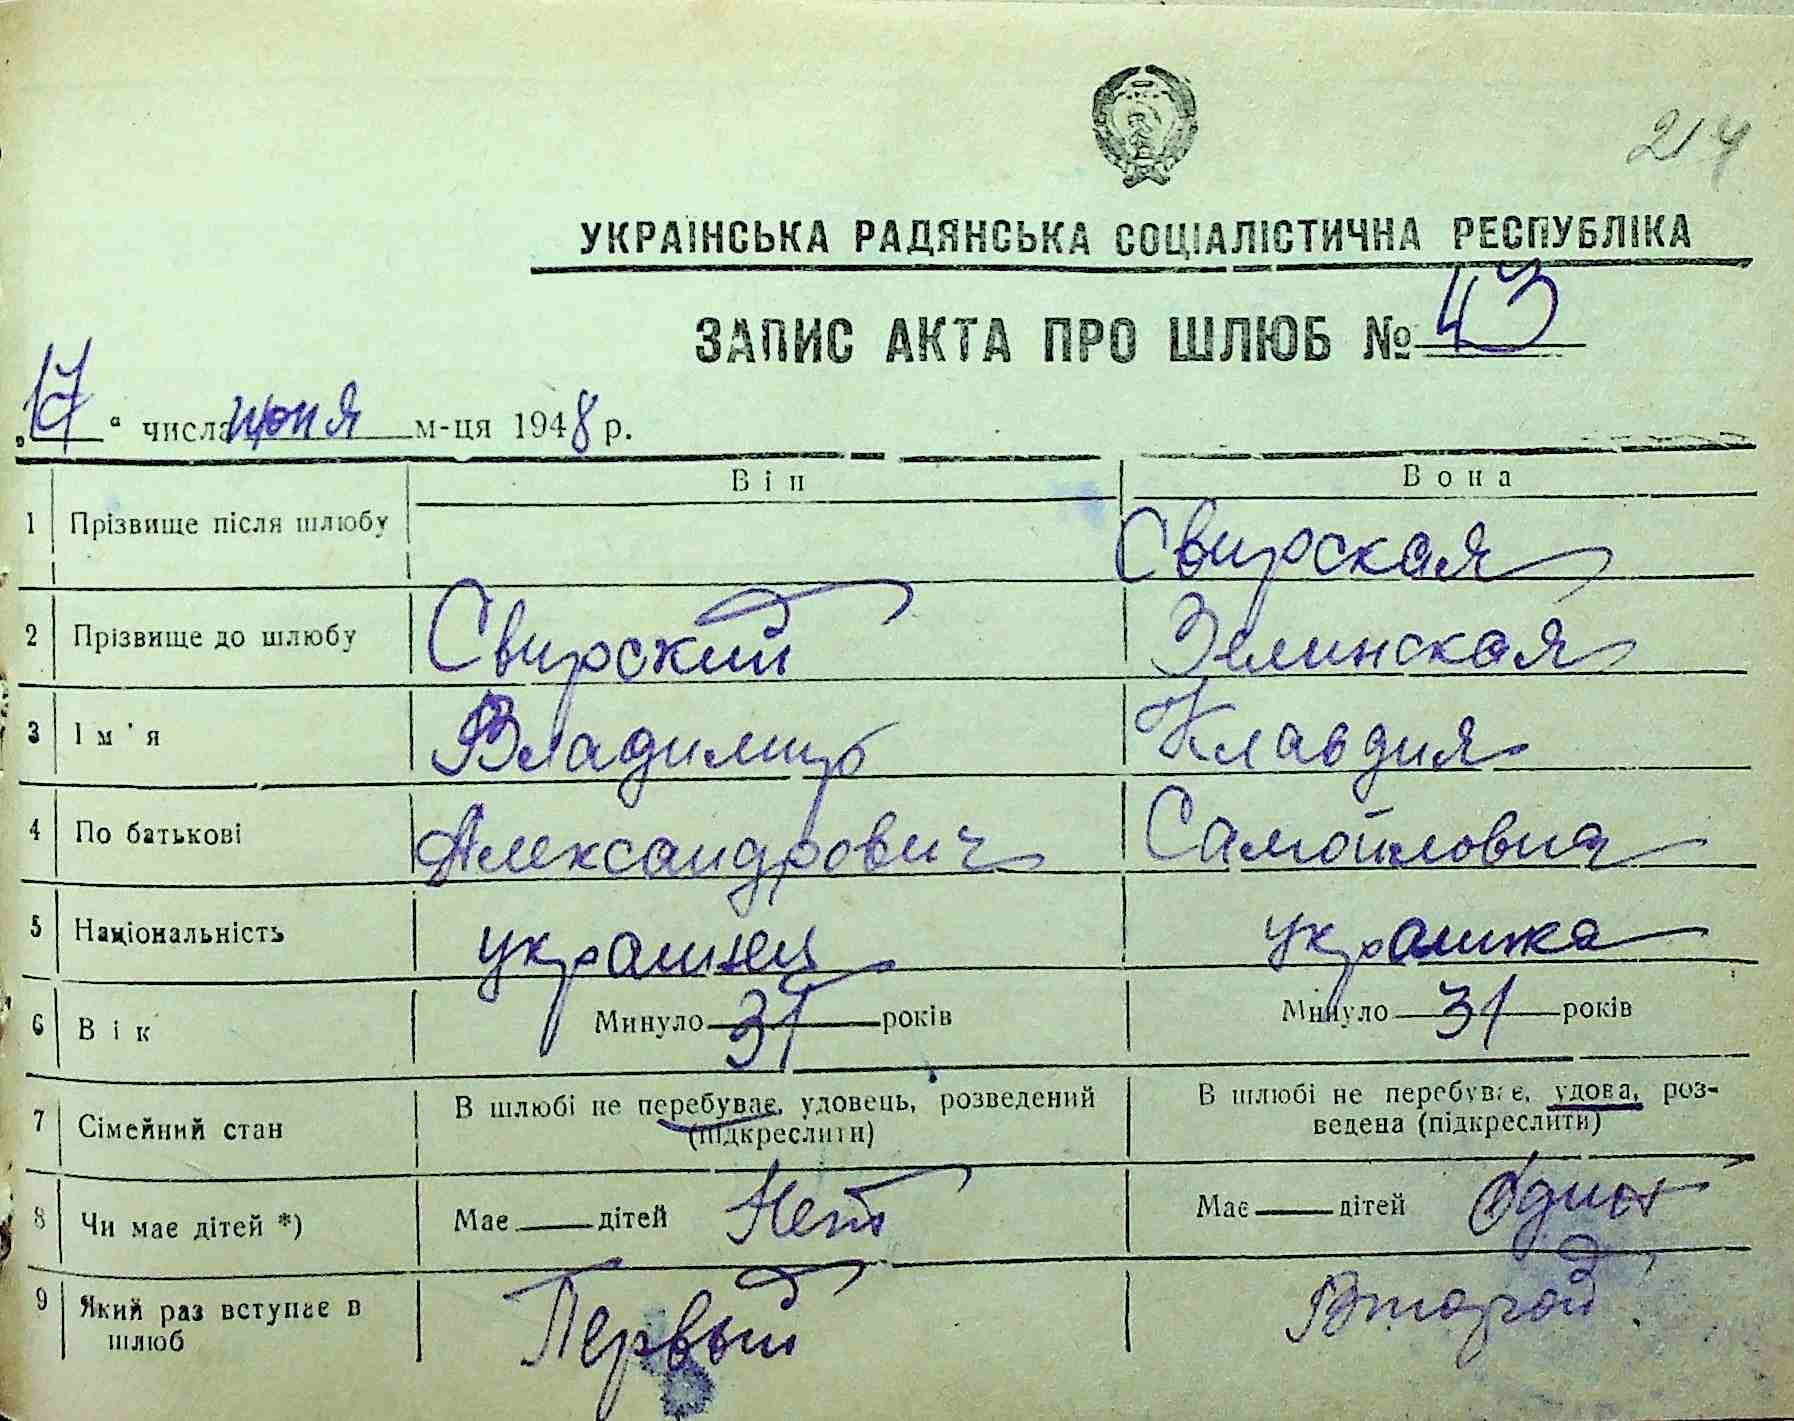 214
УКРАЇНСЬКА РАДЯНСЬКА СОЦІАЛІСТИЧНА РЕСПУБЛІКА
ЗАПИС АКТА ПРО ШЛЮБ № 43
„17“ числа июня м-ця 1948 р.
Він Вона
1 Прізвище після шлюбу Свирская
2 Прізвище до шлюбу Свирский Зелинская
3 Ім'я Владимир Клавдия
4 По батькові Александрович Самойловна
5 Національність украинец украинка
6 Вік Минуло 31 років Минуло 31 років
7 Сімейний стан В шлюбі не перебуває, удовець, розведений (підкреслити) В шлюбі не перебуває, удова, розведена (підкреслити)
8 Чи має дітей *) Має дітей Нет Має дітей
9 Який раз вступає в шлюб Первый Второй